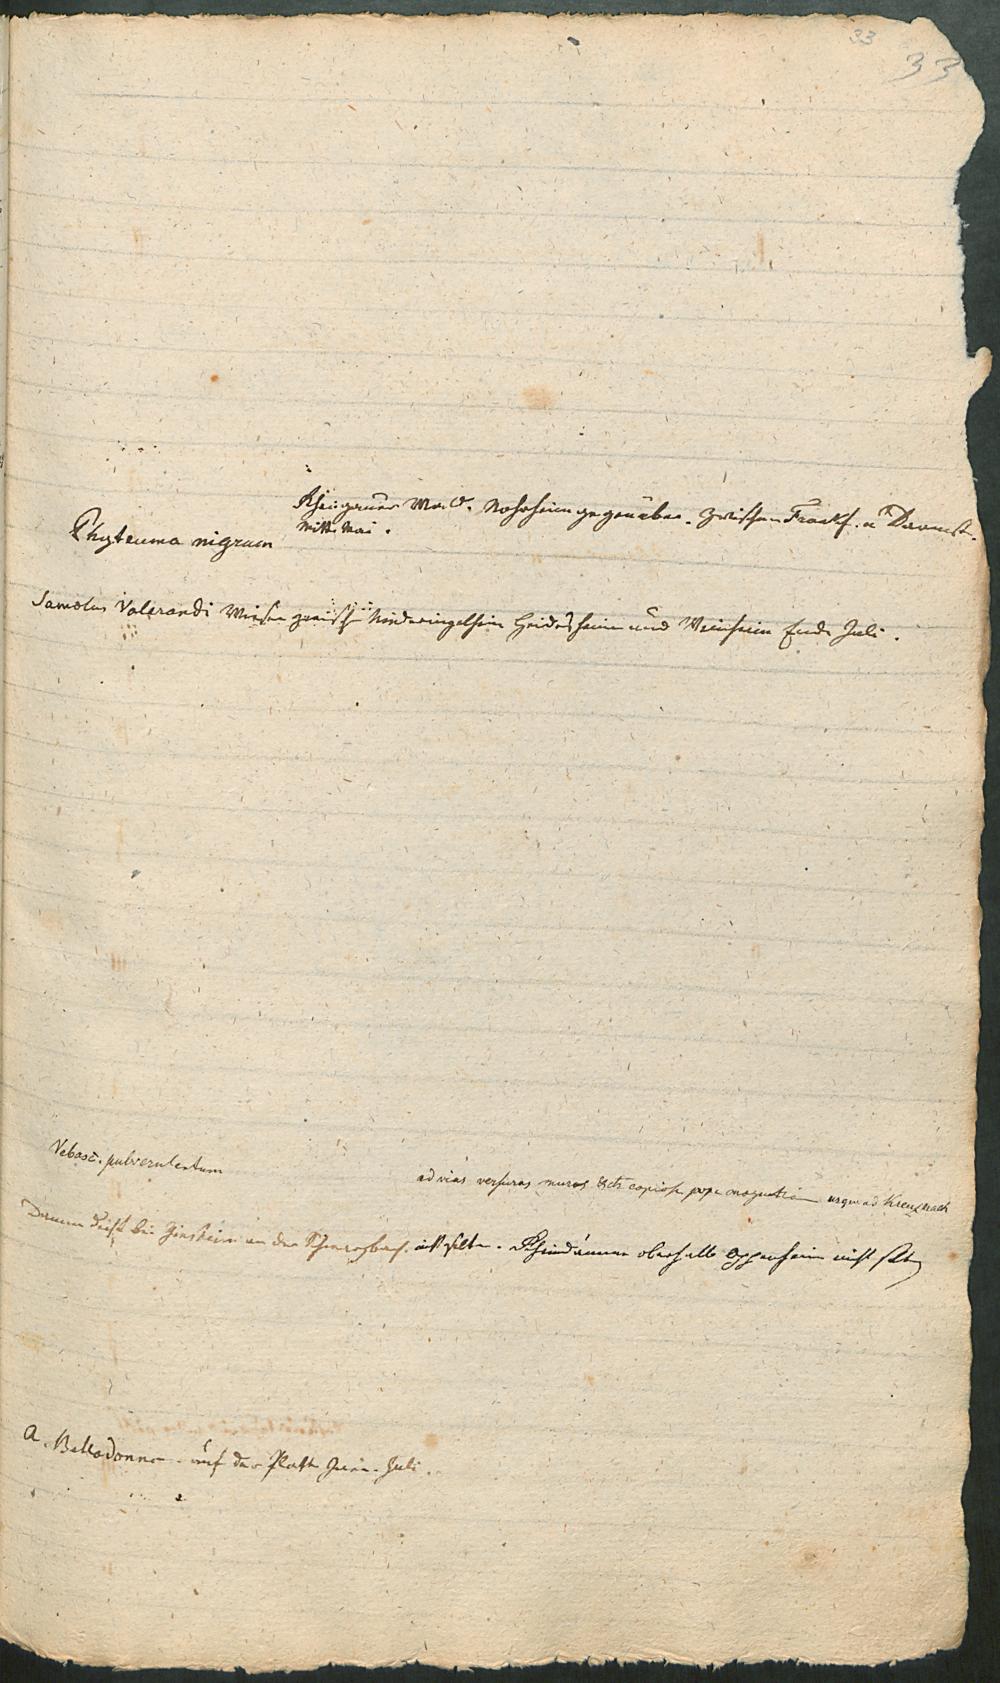 33
33
Rheingauer Wald. Mosheim gegenüber. Zwischen Frankf. u Darmst.
Mitte Mai.
Phyteuma nigrum
Samolus Valerandi Wiesen zwisch Niederingelheim Heidesheim und Weinheim Ende Juli.
Vebasc. pulverulentum
ad vias versuras muros etc copiose prope moguntiam usque ad Kreuznach
Damm bei Ginsheim an der nicht selten. Rheindämme oberhalb Oppenheim nicht selten
A. Belladonna. auf der Platte Juni. Juli.